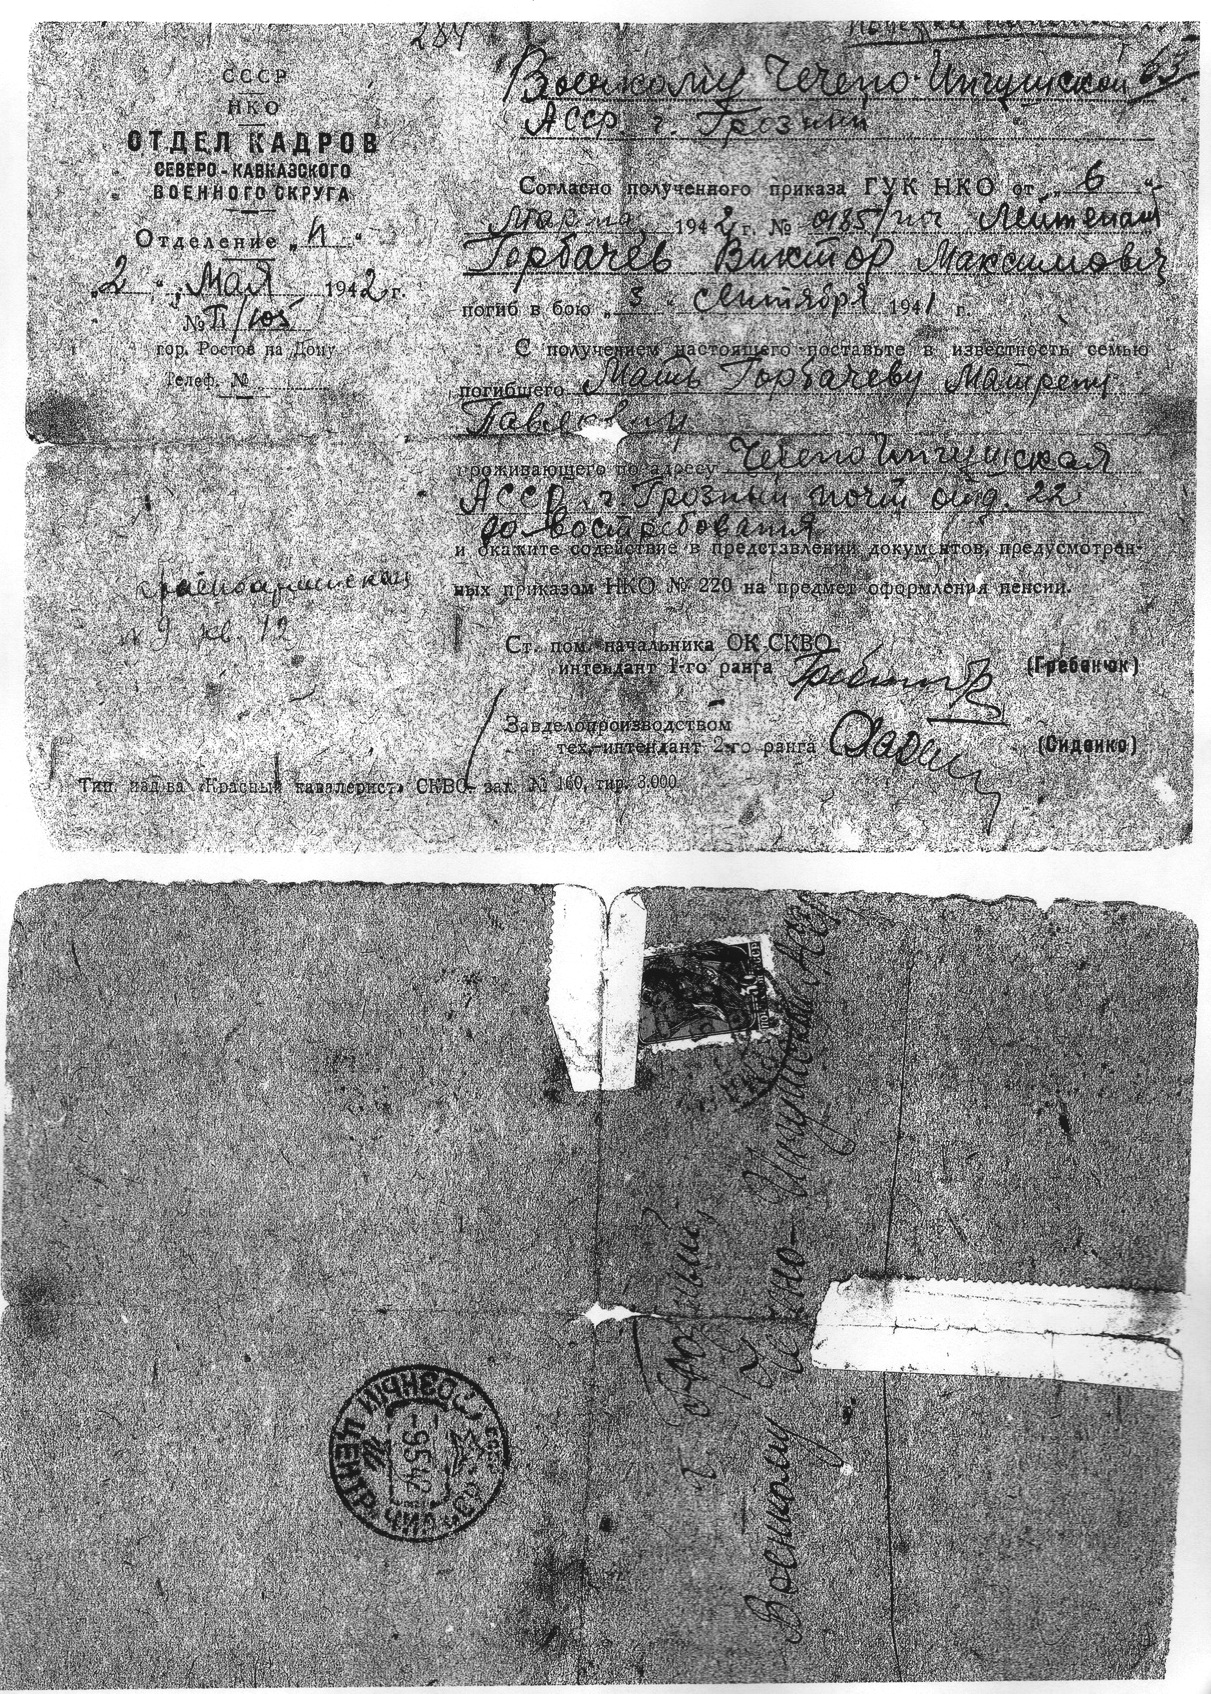 284
63
СССР
НКО
ОТДЕЛ КАДРОВ
СЕВЕРО-КАВКАЗСКОГО
ВОЕННОГО ОКРУГА
Отделение „ 4 “
„2 “ Мая 1942 г.
№ П/105
гор. Ростов на Дону
Телеф. №
Военкому Чечено-Ингушской
АССР. г. Грозный
Согласно полученного приказа ГУК НКО от „ 6 “
Марта 1942 г. № 0185/пч Лейтенант
Горбачев Виктор Максимович
погиб в бою „ 3 “ Сентября 1941 г.
С получением настоящего поставьте в известность семью
погибшего Мать Горбачеву Матрену
Павловну
проживающего по адресу Чечено Ингушская
АССР. г. Грозный почт отд. 22
до востребования
и окажите содействие в представлении документов, предусмотрен-
ных приказом НКО № 220 на предмет оформления пенсии.
№ 9 кв. 12
Ст. пом. начальника ОК СКВО
интендант 1-го ранга (Гребенюк)
Завделопроизводством
тех.-интендант 2-го ранга (Сиденко)
Тип. изд-ва «Красный кавалерист» СКВО. зак. № 160, тир. 3.000
30
Военкому Чечено-Ингушской АССР
г. Грозный
ГРОЗНЫЙ ЦЕНТР. ЧИАССР
-9.5.42